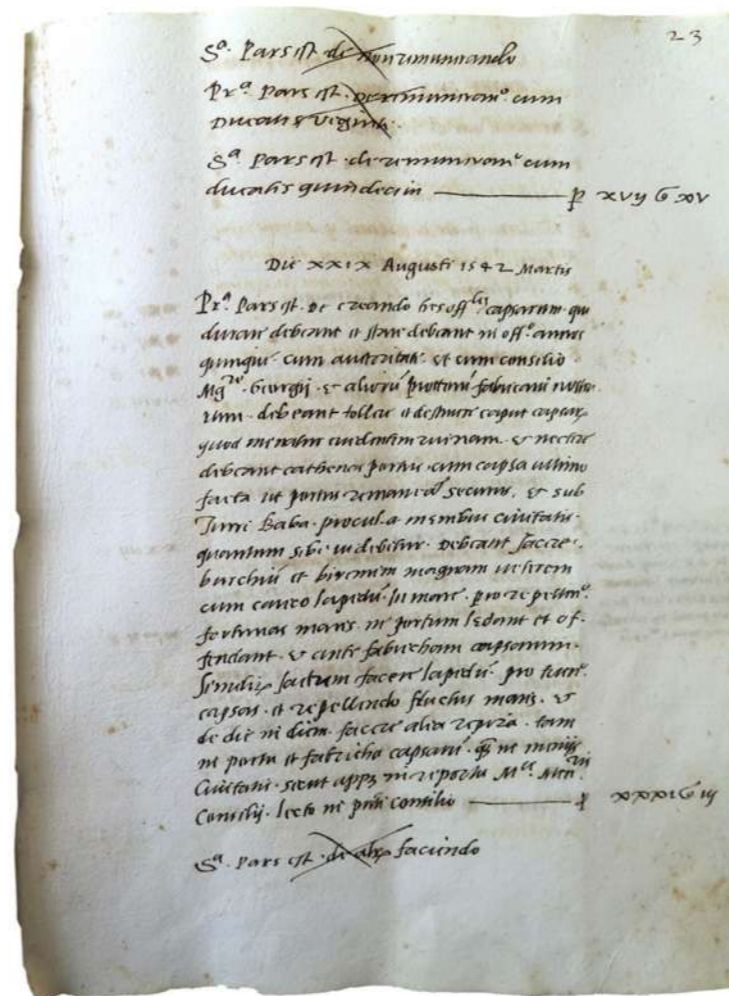 23
Sᵃ. Pars est de non remunerando
Prᵃ. Pars est. De remuneranᵒ. cum
Ducatis viginti.
Sᵃ. Pars est. de remuneranᵒ cum
ducatis quindecim ——— p xvij G xv
Die xxix Augusti 1542 Martis
Prᵃ. Pars est. De creando tres offˡᵉˢ capsarum. qui
durare debeant et stare debeant in offᵒ. annos
quinque. cum auctoritate. et cum consilio
Georgij. et aliorū fabricarū nostro-
rum. debeant tollere et destruere caput
quod minatur evidentem ruinam. et nectere
debeant cathenas portus. cum capsa ultimo
facta ut portus securus. et sub
Turri Baba. procul a menibus civitatis.
quantum sibi videbitur. Debeant facere.
burchiū et magnam veterem
cum caveo lapidū. In mare. pro repellenᵒ.
fortunas maris. ne portum ledant et of-
fendant. et ante fabricham capsarum.
factum facere lapidū. pro
capsas. et repellendo fluctus maris. et
de die in diem. facere alia tam
in portu et fabricha capsarū. in
Civitatis. sicut in reportu
Consilij. lecto in consilio ——— p xxxi G iij
Sᵃ. Pars est. de faciendo